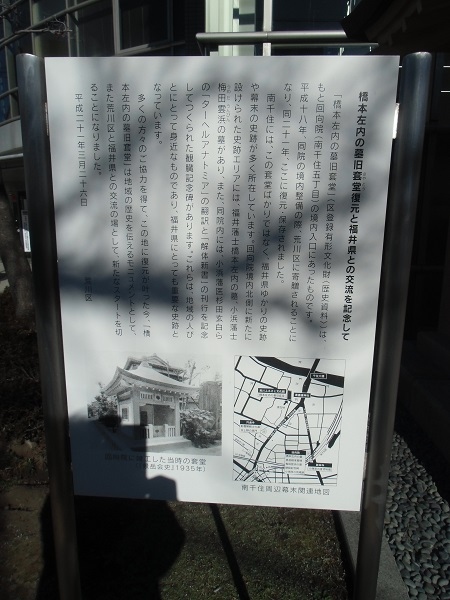 橋本左内の墓旧套堂復元と福井県との交流を記念して
「橋本左内の墓旧套堂」（区登録有形文化財（歴史資料））は、
もと回向院（南千住五丁目）の境内入口にあったものです。
平成十八年、同院の境内整備の際、荒川区に寄贈されることに
なり、同二十一年、ここに復元・保存されました。
南千住には、この套堂ばかりではなく、福井県ゆかりの史跡
や幕末の史跡が多く所在しています。回向院境内北側に新たに
設けられた史跡エリアには、福井藩士橋本左内の墓、小浜藩士
梅田雲浜の墓があり、また、同院内には、小浜藩医杉田玄白ら
の「ターヘルアナトミア」の翻訳と『解体新書』の刊行を記念
してつくられた観臓記念碑があります。これらは、地域の人び
とにとって身近なものであり、福井県にとっても重要な史跡と
なっています。
多くの方々のご協力を得て、この地に復元がなった今、「橋
本左内の墓旧套堂」は地域の歴史を伝えるモニュメントとして、
また荒川区と福井県との交流の場として、新たなスタートを切
ることになりました。
平成二十一年三月二十六日
した当時の套堂
1935年）
南千住周辺幕末関連地図